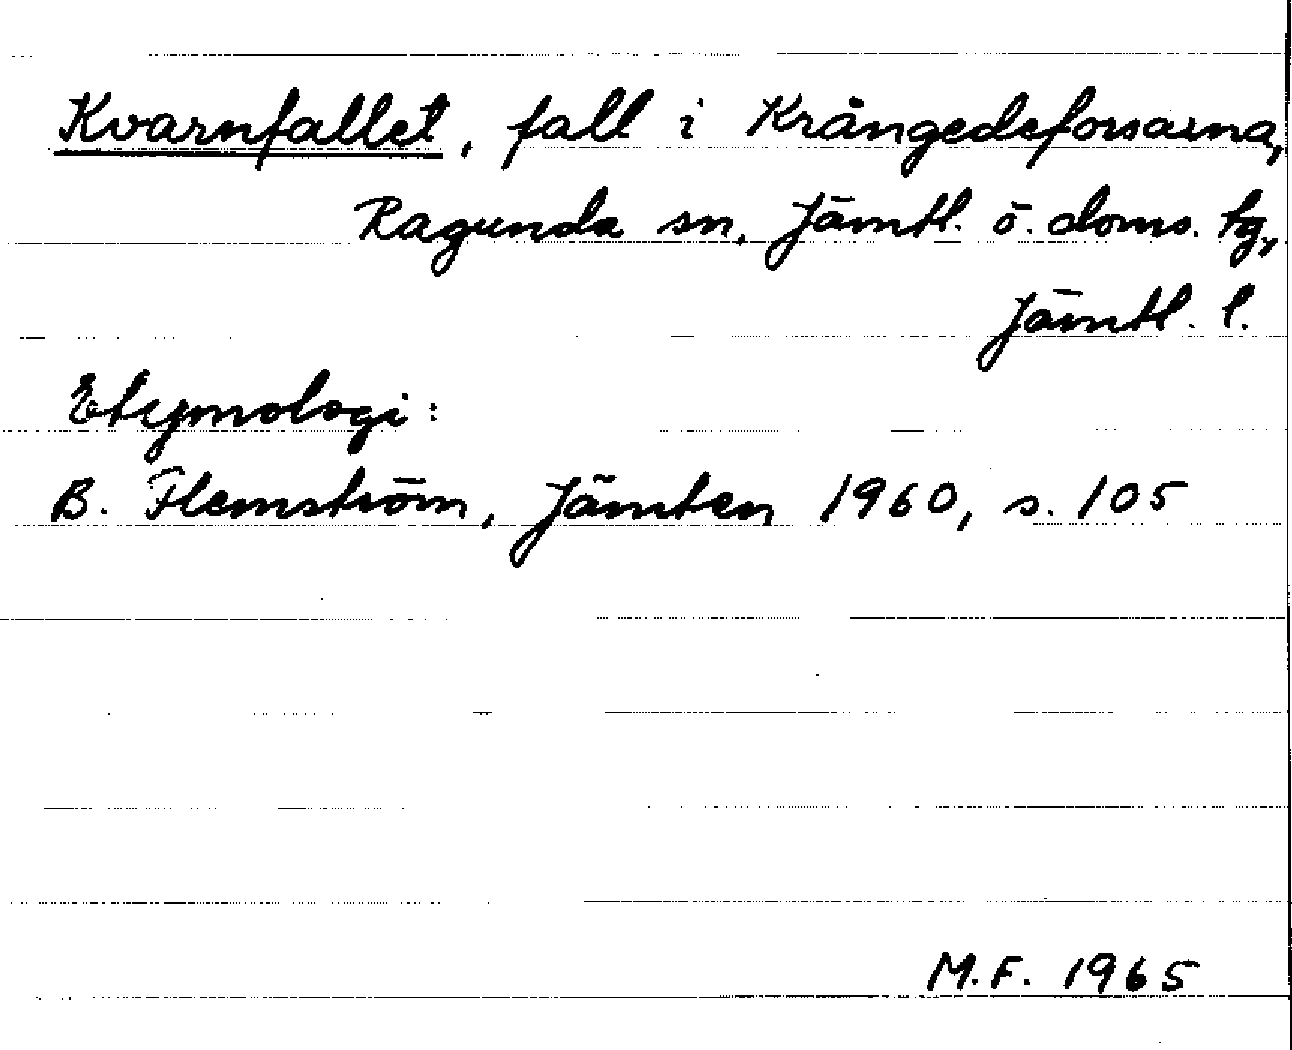 Kvarnfallet, fall i Krångedeforsarna,
Ragunda sn, Jämtl. ö. doms. tg,
Jämtl. l.
Etymologi:
B. Flemström, Jämten 1960, s. 105
M.F. 1965